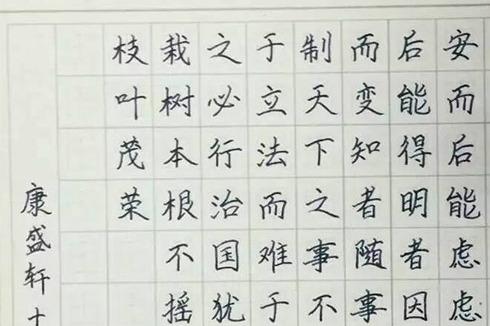 安而后能虑虑
后能得明者因
而变知者随事
制天下之事不
于立法而难于
之必行治国犹
栽树本根不摇
枝叶茂荣
康盛轩